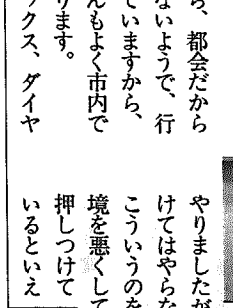 ら、都会だから
ないようで、行
ていますから、
んもよく市内で
ります。
ックス、ダイヤ
やりましたが
けてはやらな
こういうのを
境を悪くして
押しつけて
いるといえ